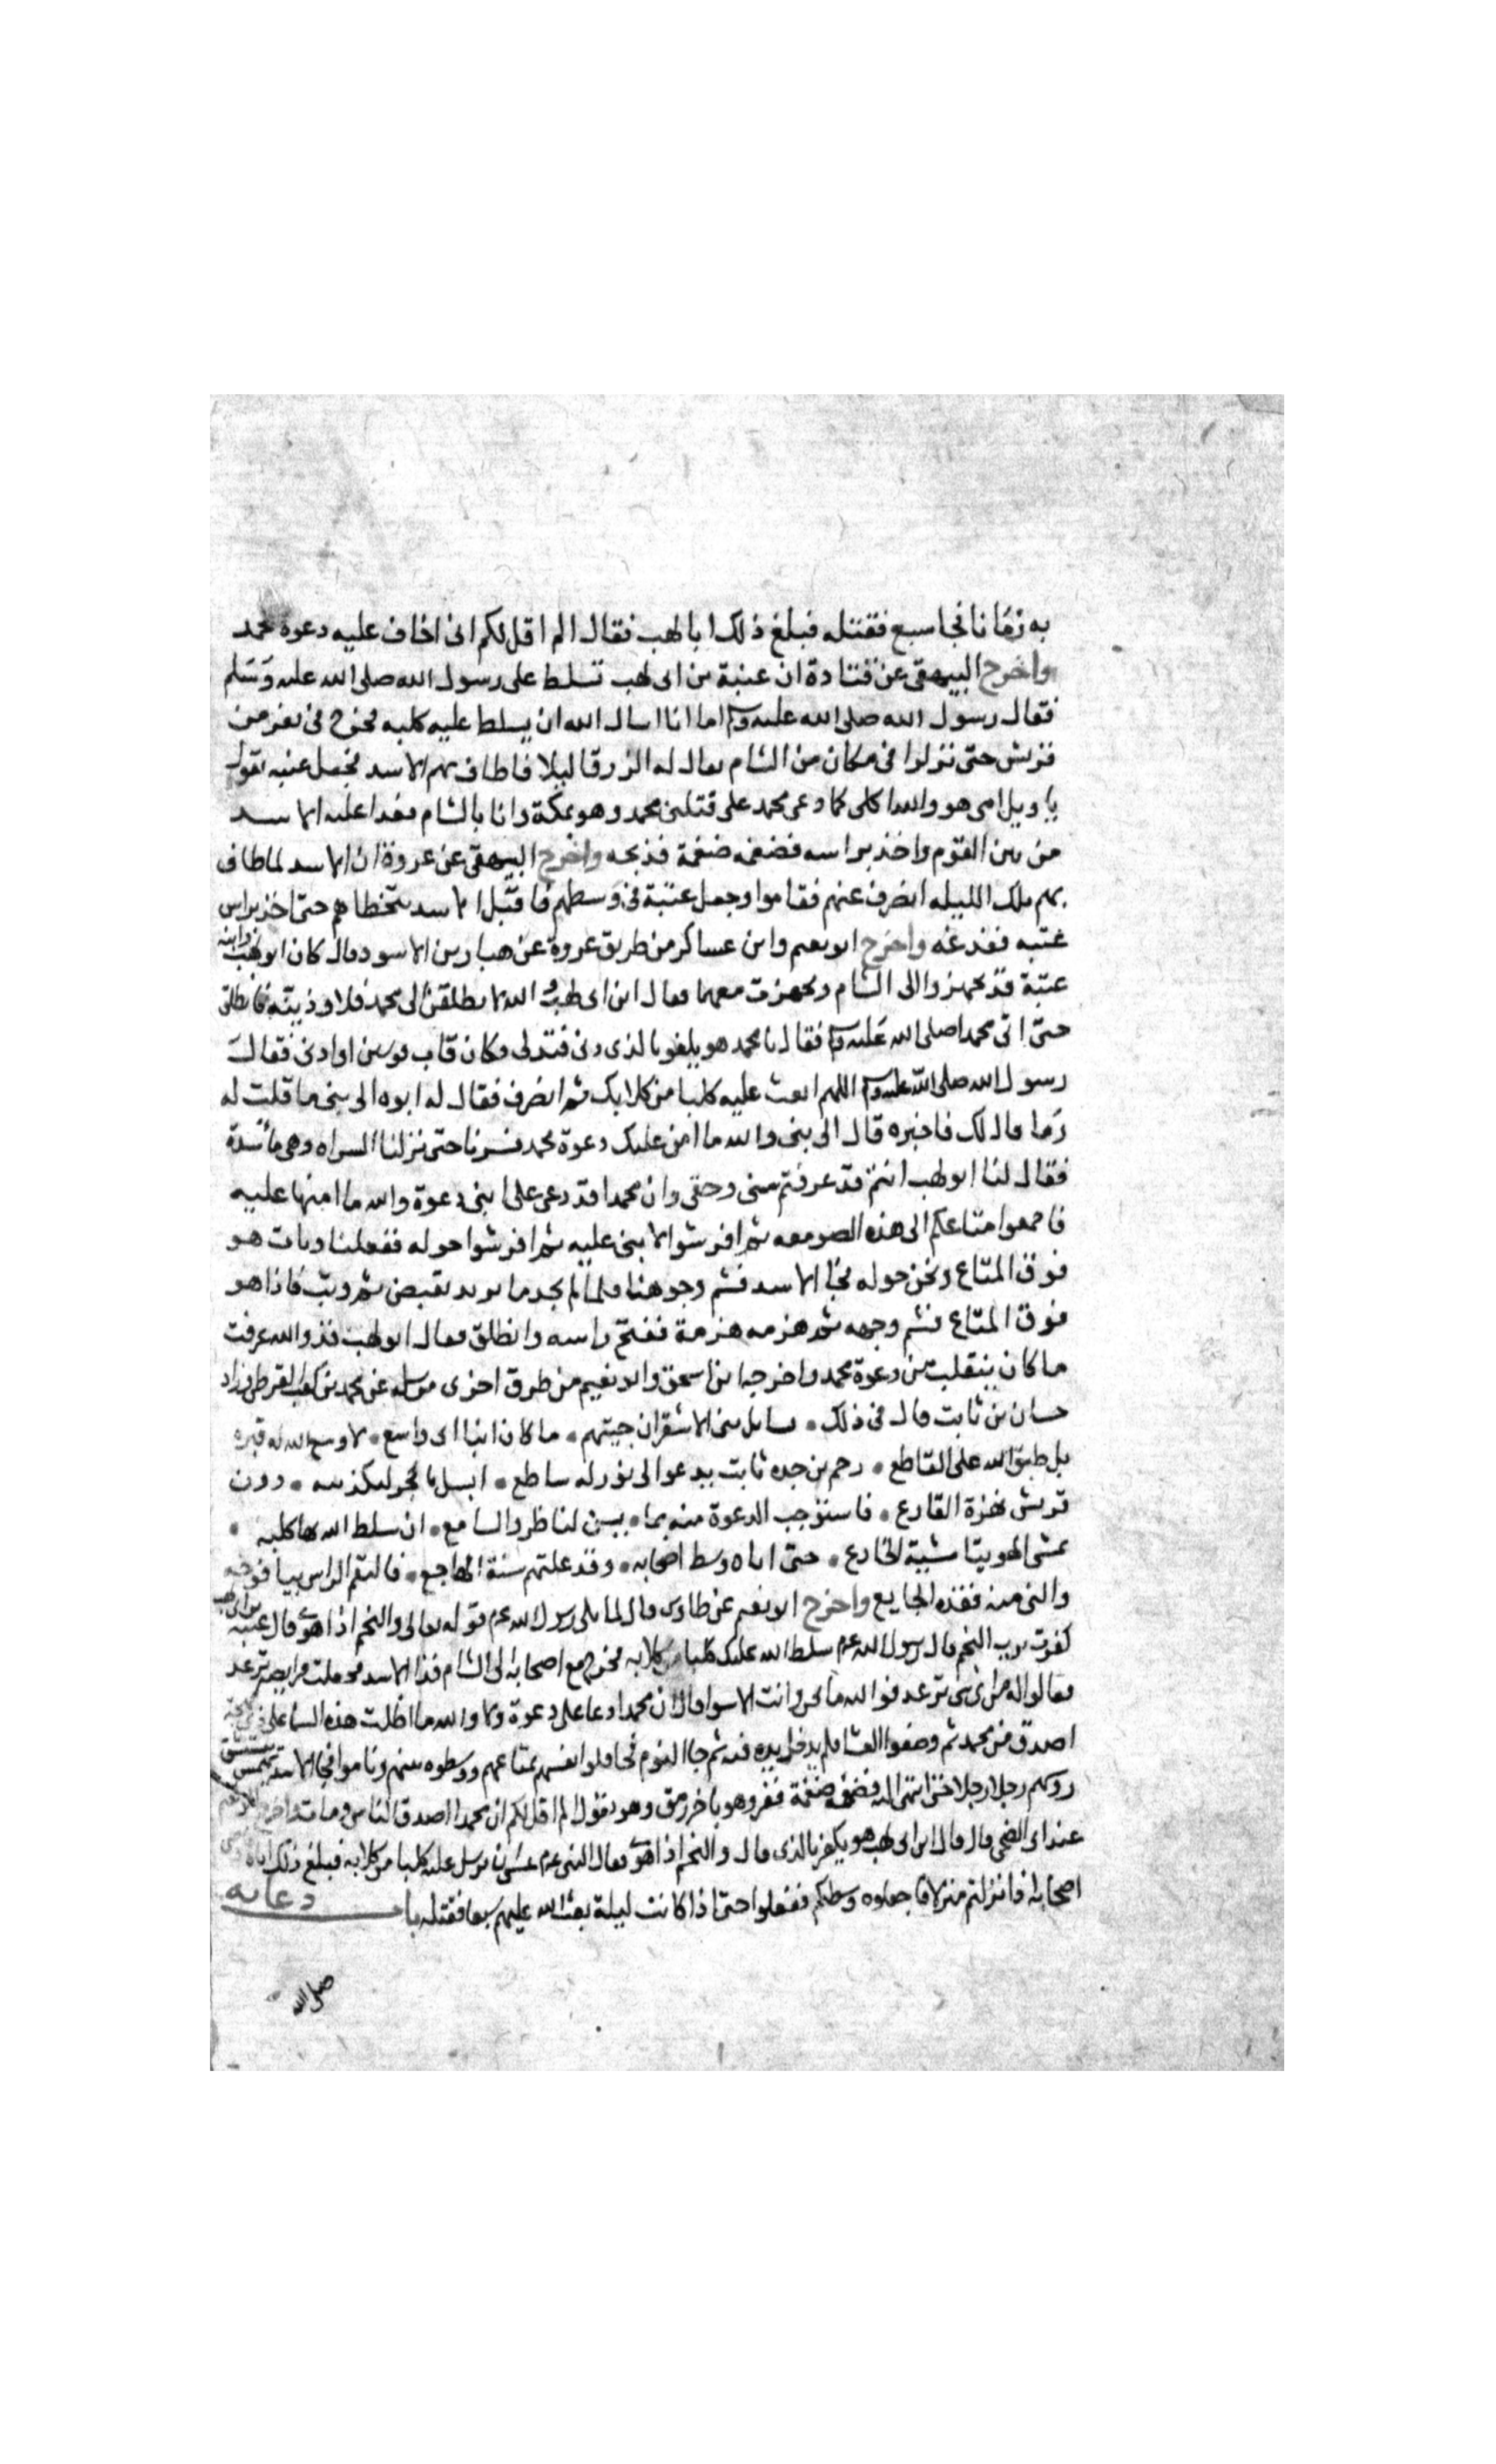 به زمانا فجا سبع فقتله فبلغ ذلك ابا لهب فقال الم اقل لكم انى اخاف عليه دعوة محمد
واخرج البيهقى عن قتادة ان عتبة بن ابى لهب تسلط على رسول الله صلى الله عليه وسلم
فقال رسول الله صلى الله عليه وسلم اما انا اسال الله ان يسلط عليه كلبه فخرج فى نفر من
قريش حتى نزلوا فى مكان من الشام يقال له الزرقا ليلا فاطاف بهم الاسد فجعل عتبه يقول
يا ويل امى هو والله اكلى كما دعى محمد على قتلنى محمد وهو بمكة وانا بالشام فغدا عليه الاسد
من بين القوم واخذ براسه فضغمه ضغمة فذبحه واخرج البيهقى عن عروة ان الاسد لما طاف
بهم تلك الليله انصرف عنهم فقاموا وجعل عتبة فى وسطهم فاقبل الاسد يتخطاهم حتى اخذ براس
عتبه ففدغه واخرج ابو نعيم وابن عساكر من طريق عروة عن هبار بن الاسود قال كان ابو لهب وابنه
عتبة قد تجهزوا الى الشام وتجهزت معهما فقال ابن ابى لهب والله لانطلقن الى محمد فلاوذينه فانطلق
حتى اتى محمدا صلى الله عليه وسلم فقال يا محمد هو يكفر بالذى دنى فتدلى فكان قاب قوسين او ادنى فقال
رسول الله صلى الله عليه وسلم اللهم ابعث عليه كلبا من كلابك ثم انصرف فقال له ابوه اى بنى ما قلت له
وما قال لك فاخبره قال اى بنى والله ما امن عليك دعوة محمد فسرنا حتى نزلنا السراه وهى ماسدة
فقال لنا ابو لهب انتم قد عرفتم سنى وحقى وان محمدا قد دعى على ابنى دعوة والله ما امنها عليه
فاجمعوا متاعكم الى هذه الصومعه ثم افرشوا لابنى عليه ثم افرشوا حوله ففعلنا وبات هو
فوق المتاع ونحن حوله فجا الاسد فشم وجوهنا فلما لم يجد ما يريد تقبض ثم وثب فاذا هو
فوق المتاع فشم وجهه ثم هزمه هزمة ففتح راسه وانطلق فقال ابو لهب قد والله عرفت
ما كان ينقلب من دعوة محمد واخرجه ابن اسحق وابو نعيم من طرق اخرى مرسله عن محمد بن كعب القرظى وزاد
حسان بن ثابت قال فى ذلك • سايل بنى الاشقر ان جيتهم • ما كان انبا ابى واسع • لا وسع الله له قبره
بل ضيق الله على القاطع • رحم بن جده ثابت يدعوا الى نور له ساطع • اسبل بالحجر لتكذيبه • دون
قريش نهزة القارع • فاستوجب الدعوة منه بما • بين للناظر والسامع • ان سلط الله بها كلبه •
يمشى الهوينا مشية الخادع • حتى اتاه وسط اصحابه • وقد علتهم سنة الهاجع • فالتقم الراس بيافوخه
والنحر منه فغذه الجايع واخرج ابو نعيم عن طاوس قال لما تلى رسول الله عم قوله تعالى والنجم اذا هوى قال عتبة بن ابى لهب
كفرت برب النجم قال رسول الله عم سلط الله عليك كلبا من كلابه فخرج مع اصحابه الى الشام فزا الاسد فجعلت فرايصه ترعد
فقالوا له من اى شى ترعد فوالله ما نحن وانت الا سوا قال ان محمدا دعا على دعوة ولا والله ما اظلت هذه السما على ذى لهجه
اصدق من محمد ثم وضعوا العشا فلم يدخل يده فيه ثم جا النوم فحاطوا انفسهم بمتاعهم ووسطوه بينهم وناموا فجا الاسد يهمس يستنشق
روسهم رجلا رجلا حتى انتهى اليه فضغمه ضغمة ففزع وهو باخر رمق وهو يقول الم اقل لكم ان محمدا اصدق الناس ومات واخرج ابو نعيم
عن ابى الضحى قال قال ابن ابى لهب هو يكفر بالذى قال والنجم اذا هوى فقال النبى عم عسى ان يرسل عليه كلبا من كلابه فبلغ ذلك اباه
اصحابه اذا نزلتم منزلا فاجعلوه وسطكم ففعلوا حتى اذا كانت ليلة بعث الله عليهم سبعا فقتله با دعايه
صلى الله